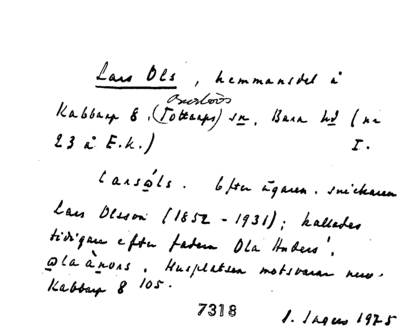 Lars Ols, hemmansdel å
Bjerlöös
Kabbarp 8, (Tottarps) sn, Bara hd (nr
23 å E.k.) I.
larsəls. Efter ägaren, snickaren
Lars Olsson (1852 - 1931); kallades
tidigare efter fadern Ola Anders',
ola ànərs. Husplatsen motsvarar nuv.
Kabbarp 8 105.
7318
I. Ingers 1975